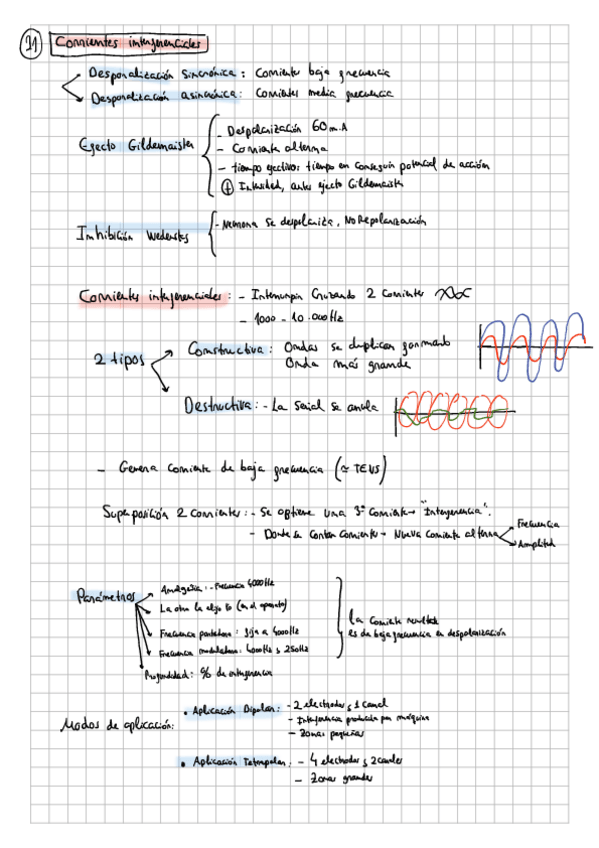 21 Corrientes interferenciales
Despolarización Sincrónica: Corriente baja frecuencia
Despolarización asincrónica: Corrientes media frecuencia
Efecto Gildemaister
- Despolarización 60mA
- Corriente alterna
- tiempo efectivo: tiempo en conseguir potencial de acción
+ Intensidad, antes efecto Gildemaister
Inhibición Wedensky
- Neurona se despolariza, No Repolarización
Corrientes interferenciales: - Interrumpin Cruzando 2 Corrientes
- 1000 - 10.000Hz
2 tipos
Constructiva: Ondas se duplican formando
Onda más grande
Destructiva: - La señal se anula
- Genera corriente de baja frecuencia (≃ TENS)
Superposición 2 corrientes: - Se obtiene una 3ª Corriente → "Interferencia".
- Donde se cortan corrientes → Nueva corriente alterna
Frecuencia
Amplitud
Parámetros
Analgesia: - Frecuencia 4000Hz
La otra la elijo yo (en el aparato)
Frecuencia portadora: fija a 4000Hz
Frecuencia moduladora: 4000Hz y 250Hz
Profundidad: % de interferencia
La Corriente resultado
es de baja frecuencia en despolarización
Modos de aplicación:
• Aplicación Bipolar: - 2 electrodos y 1 canal
- Interferencia producida por máquina
- Zonas pequeñas
• Aplicación Tetrapolar: - 4 electrodos y 2 canales
- Zonas grandes